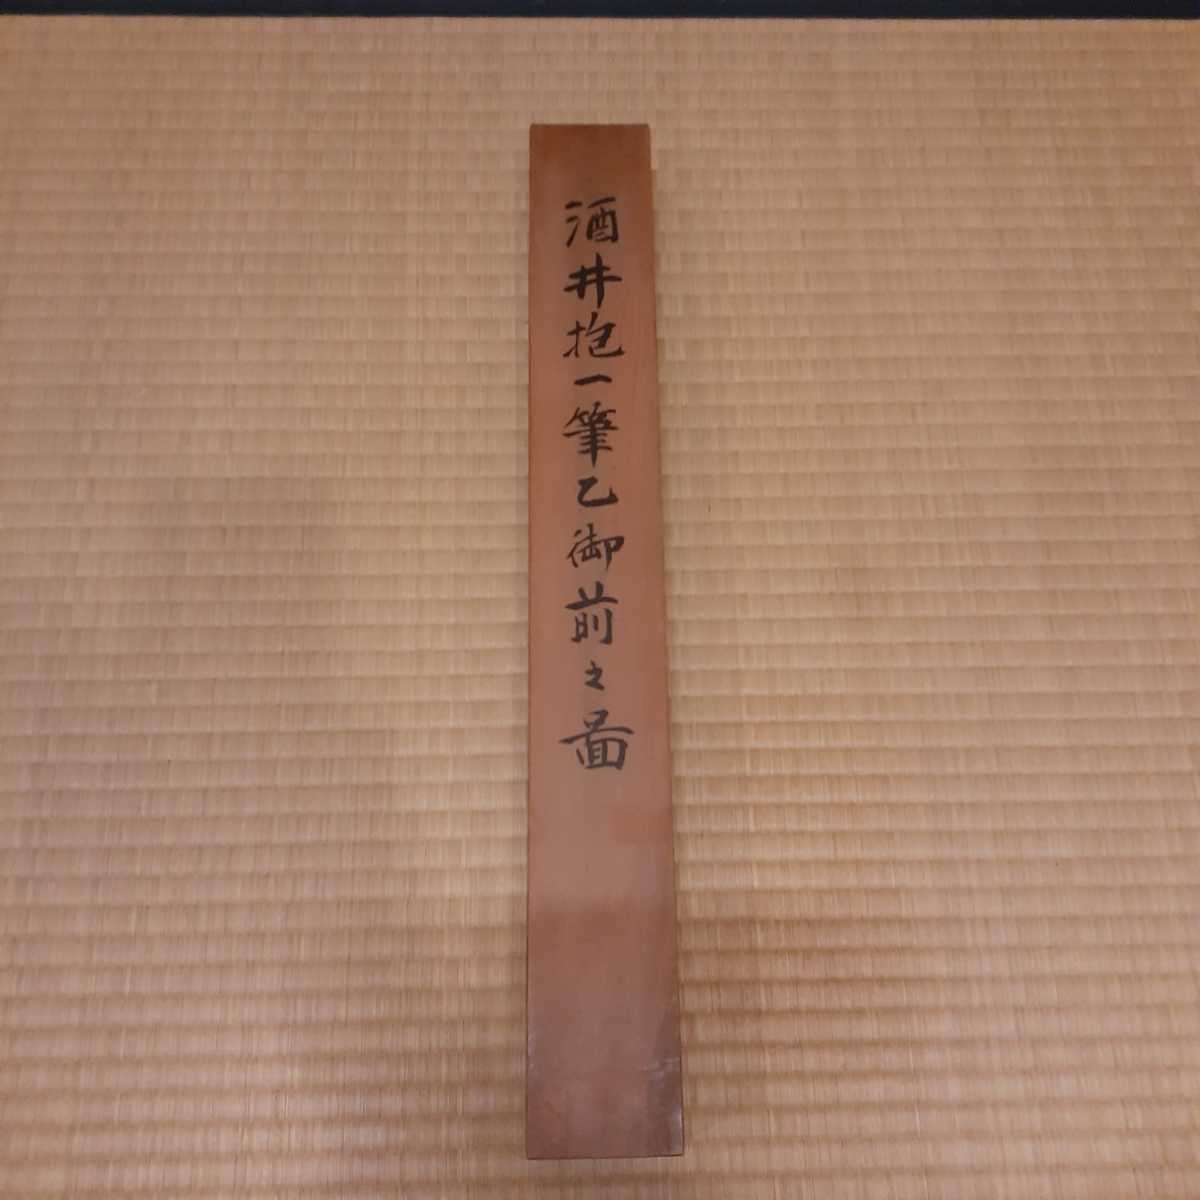 酒井抱一筆乙御前之図